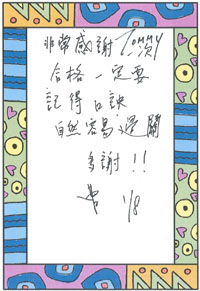 非常感謝 TOMMY
合格一定要
記得口訣
自然容易過關
多謝!!
1/8